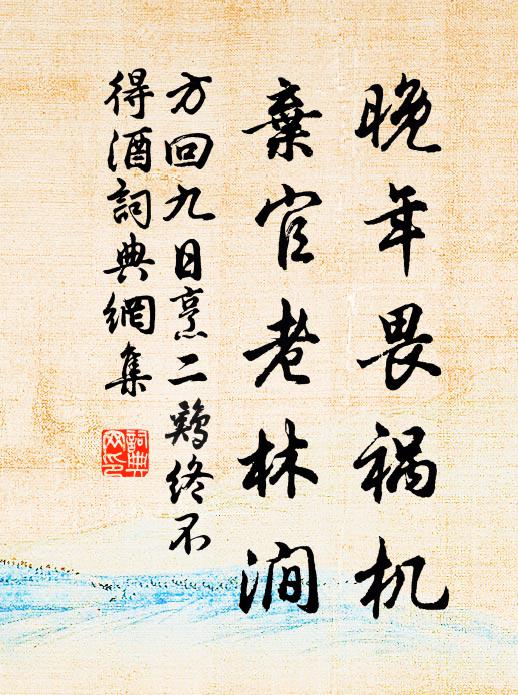 晚年畏祸机
棄官老林澗
方回九日烹二鷄终不
得酒詞典網集
詞典
网印